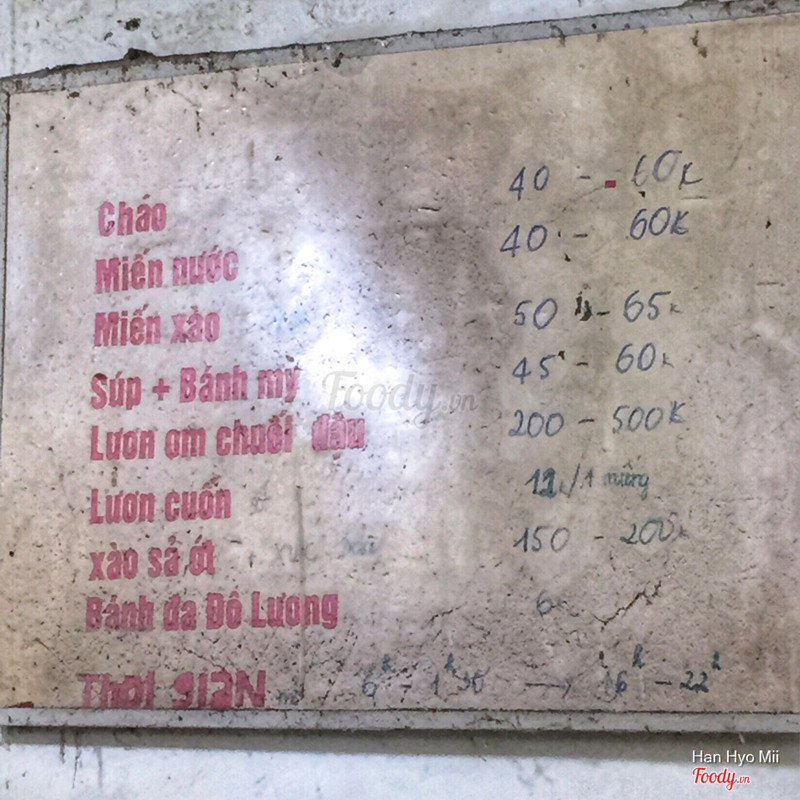 Cháo 40 - 60K
Miến nước 40 - 60K
Miến xào 50 - 65K
Súp + Bánh mỳ 45 - 60K
Lươn om chuối đậu 200 - 500K
Lươn cuốn 12K/1 miếng
xào sả ớt 150 - 200K
Bánh đa Đô Lương 6K
Thời giAN 6h - 1h30 → 16h - 22h
Foody.vn
Han Hyo Mii
Foody.vn